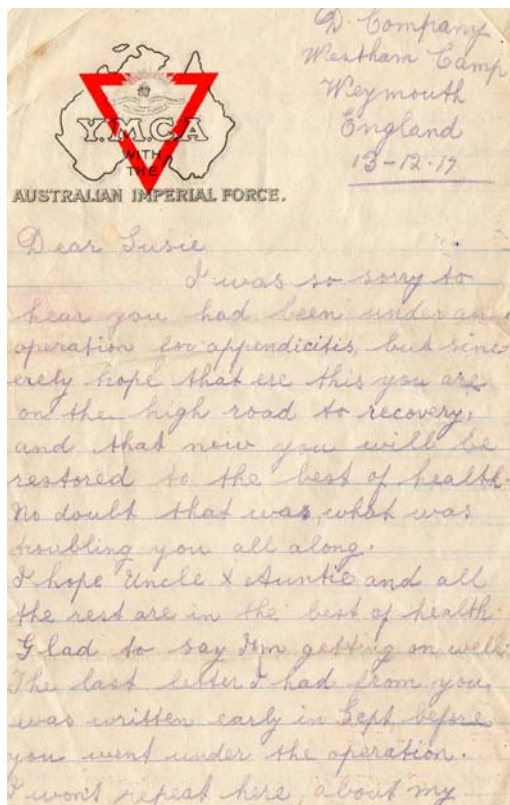 D. Company
Westham Camp
Weymouth
England
13-12-17
Y.M.C.A
WITH
THE
AUSTRALIAN IMPERIAL FORCE.
Dear Susie
I was so sorry to
hear you had been under an
operation for appendicitis, but sinc-
erely hope that ere this you are
on the high road to recovery,
and that now you will be
restored to the best of health.
No doubt that was, what was
troubling you all along.
I hope Uncle & Auntie and all
the rest are in the best of health
Glad to say I'm getting on well.
The last letter I had from you,
was written early in Sept before
you went under the operation.
I won't repeat here, about my